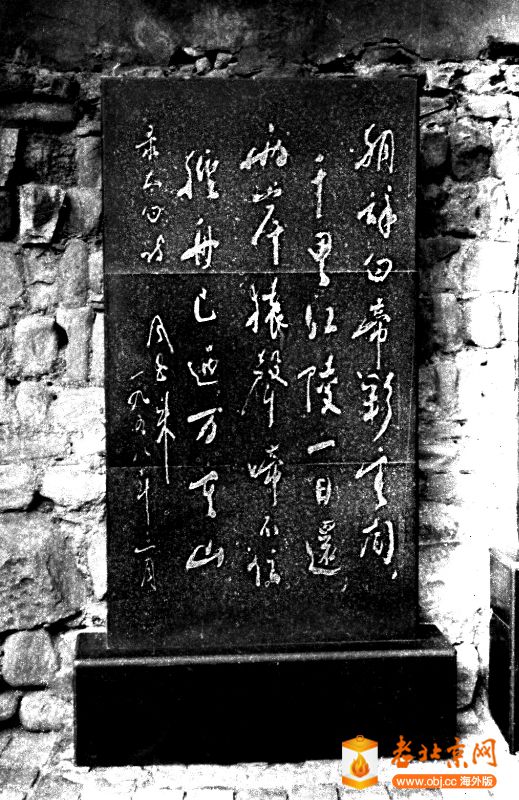 朝辞白帝彩云间，
千里江陵一日還，
两岸猿聲啼不住，
轻舟已过万重山
录太白诗
周恩来
一九五八年二月
老北京网
www.obj.cc 海外版